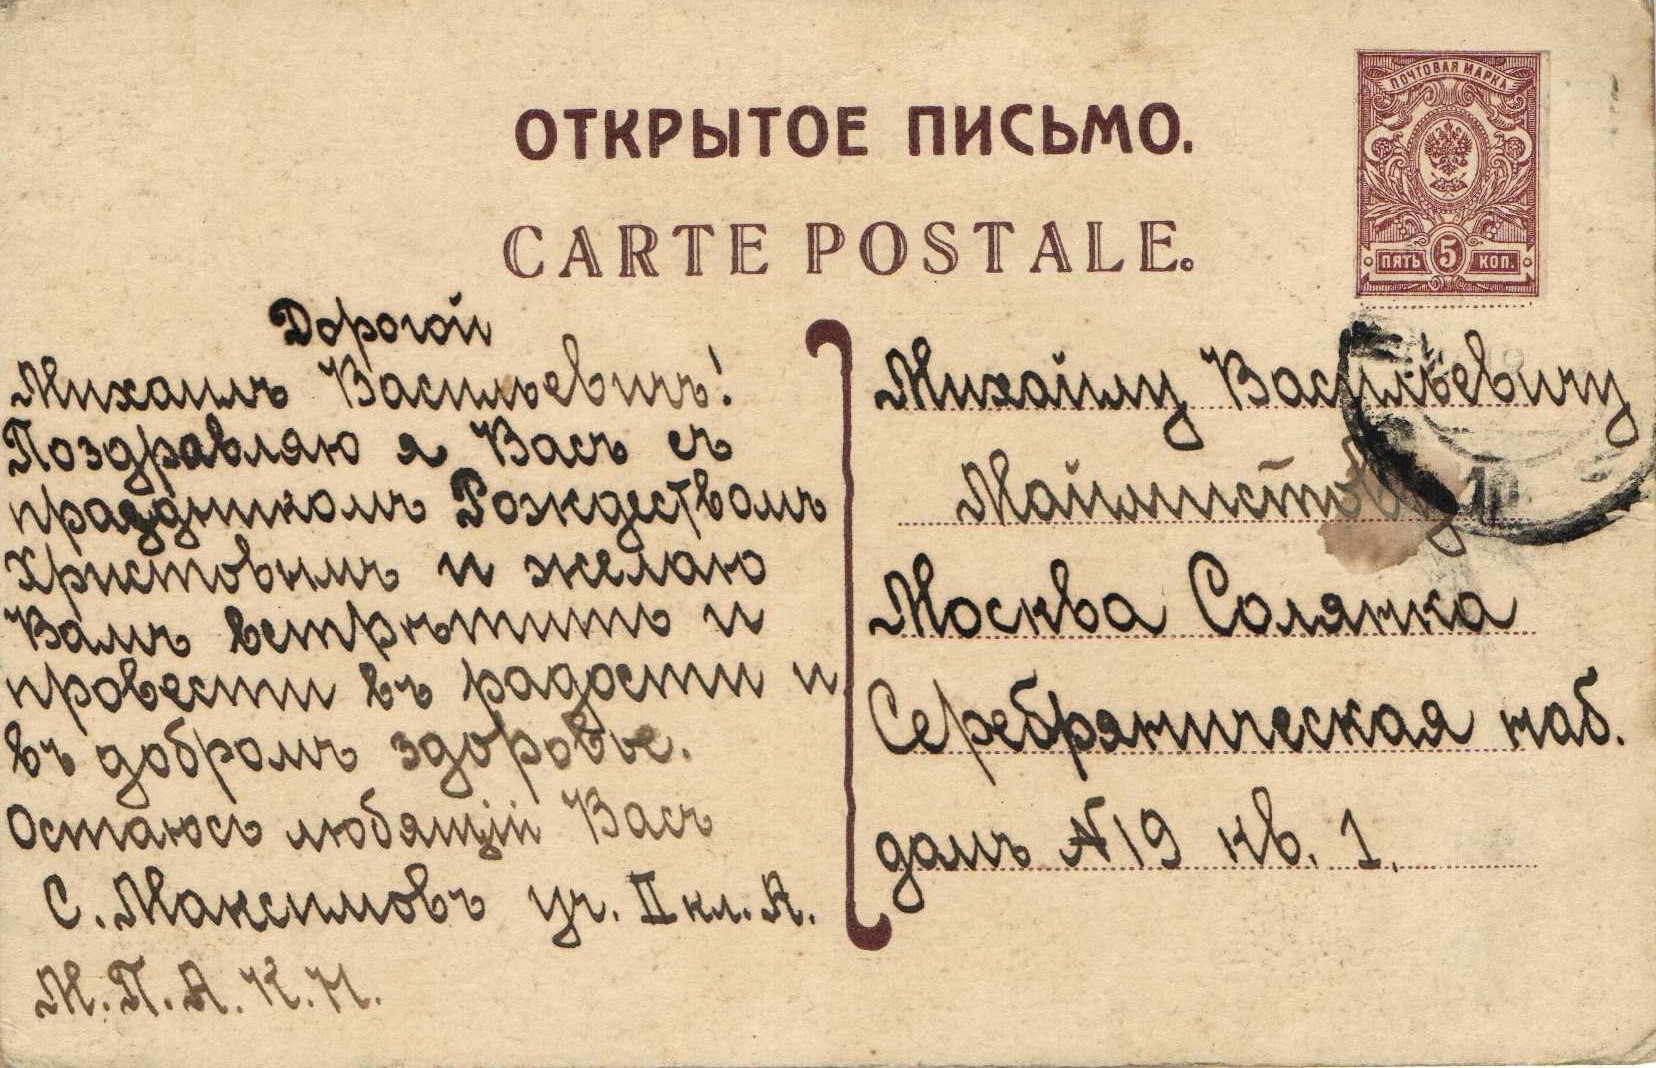 ПОЧТОВАЯ МАРКА
ОТКРЫТОЕ ПИСЬМО.
CARTE POSTALE.
ПЯТЬ 5 КОП.
Дорогой
Михаилъ Васильевичъ!
Поздравляю я Васъ съ
праздникомъ Рождествомъ
Христовымъ и желаю
Вамъ встрѣтить и
провести въ радости и
въ добромъ здоровье.
Остаюсь любящій Васъ
С. Максимовъ уч. II кл. А.
М. П. А. К. Н.
Михайлу Васильевичу
Москва Солянка
Серебряническая наб.
домъ №19 кв. 1.
10